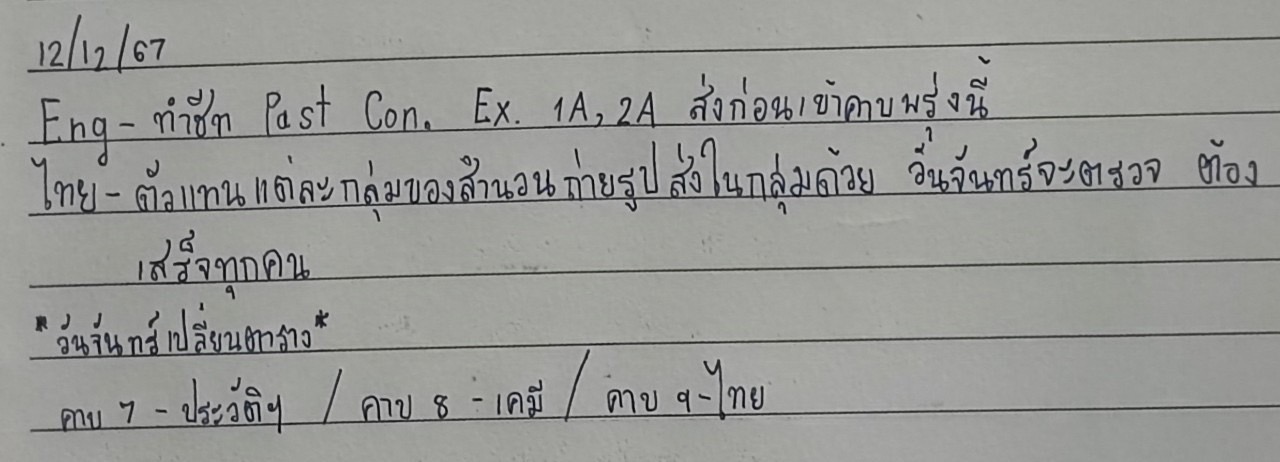 12/12/67
Eng - ทำชีท Past Con. Ex. 1A, 2A ส่งก่อนเข้าคาบพรุ่งนี้
ไทย - ตัวแทนแต่ละกลุ่มของสำนวนถ่ายรูปส่งในกลุ่มด้วย วันจันทร์จะตรวจ ต้อง
เสร็จทุกคน
*วันจันทร์เปลี่ยนตาราง*
คาบ 7 - ประวัติฯ / คาบ 8 - เคมี / คาบ 9 - ไทย